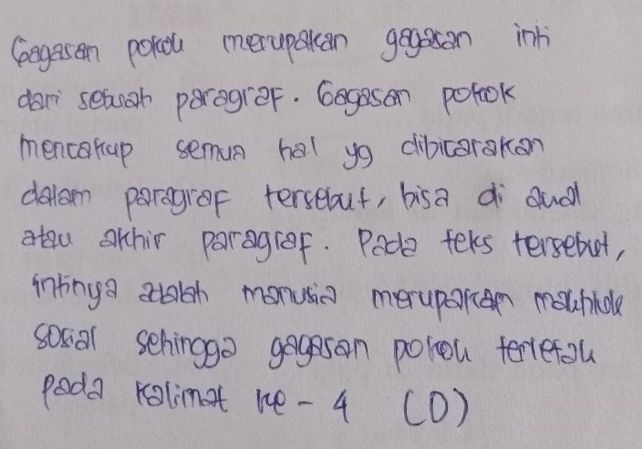 Gagasan pokok merupakan gagasan inti
dari sebuah paragraf. Gagasan pokok
mencakup semua hal yg dibicarakan
dalam paragraf tersebut, bisa di awal
atau akhir paragraf. Pada teks tersebut,
intinya adalah manusia merupakan makhluk
sosial sehingga gagasan pokok terletak
pada kalimat ke-4 (D)